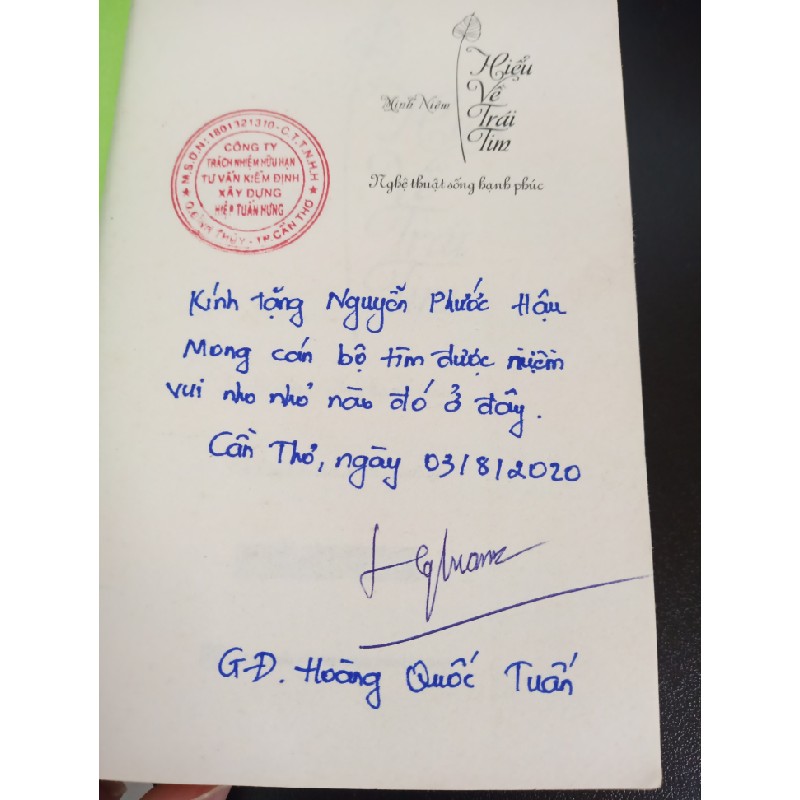 Hiểu
Về
Trái
Tim
Minh Niệm
Nghệ thuật sống hạnh phúc
M.S.D.N: 1801321310 - C.T.T.N.H.H
CÔNG TY
TRÁCH NHIỆM HỮU HẠN
TƯ VẤN KIỂM ĐỊNH
XÂY DỰNG
HIỆP TUẤN HƯNG
Q.BÌNH THỦY - TP.CẦN THƠ
Kính tặng Nguyễn Phước Hậu
Mong cán bộ tìm được niềm
vui nho nhỏ nào đó ở đây.
Cần Thơ, ngày 03/8/2020
GĐ. Hoàng Quốc Tuấn